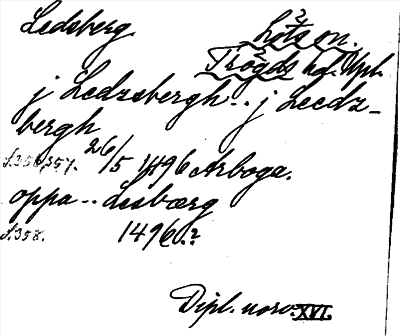 Ledsberg Löts sn.
Trögds hd. Upl.
j Ledzsbergh .. j Leedz-
bergh
s. 356, 357. 26/5 1496 Arboga.
oppa .. Lesbærg
s. 358. 1496.?
Dipl. norv. XVI.